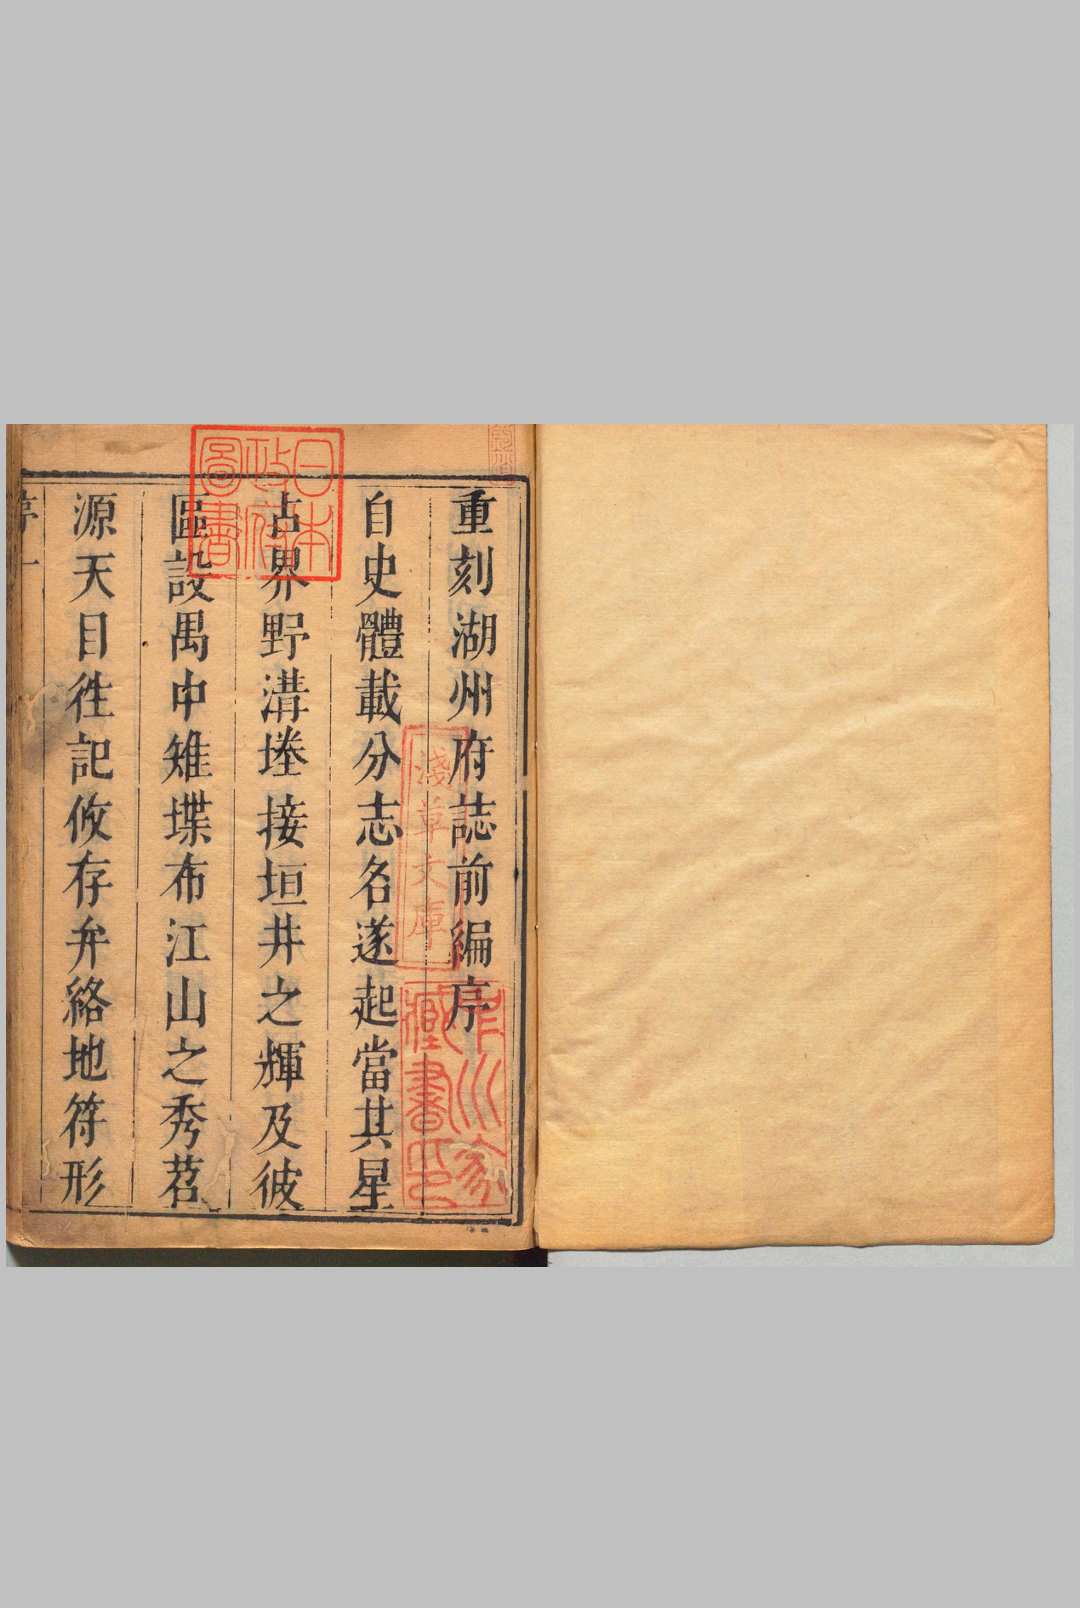 重刻湖州府誌前編序
自史體載分志名遂起當其星
占界野溝塍接垣井之輝及彼
區設禺中雉堞布江山之秀苕
源天目徃記攸存弁絡地符形
序一
日本政府圖書
淺草文庫
藏書印